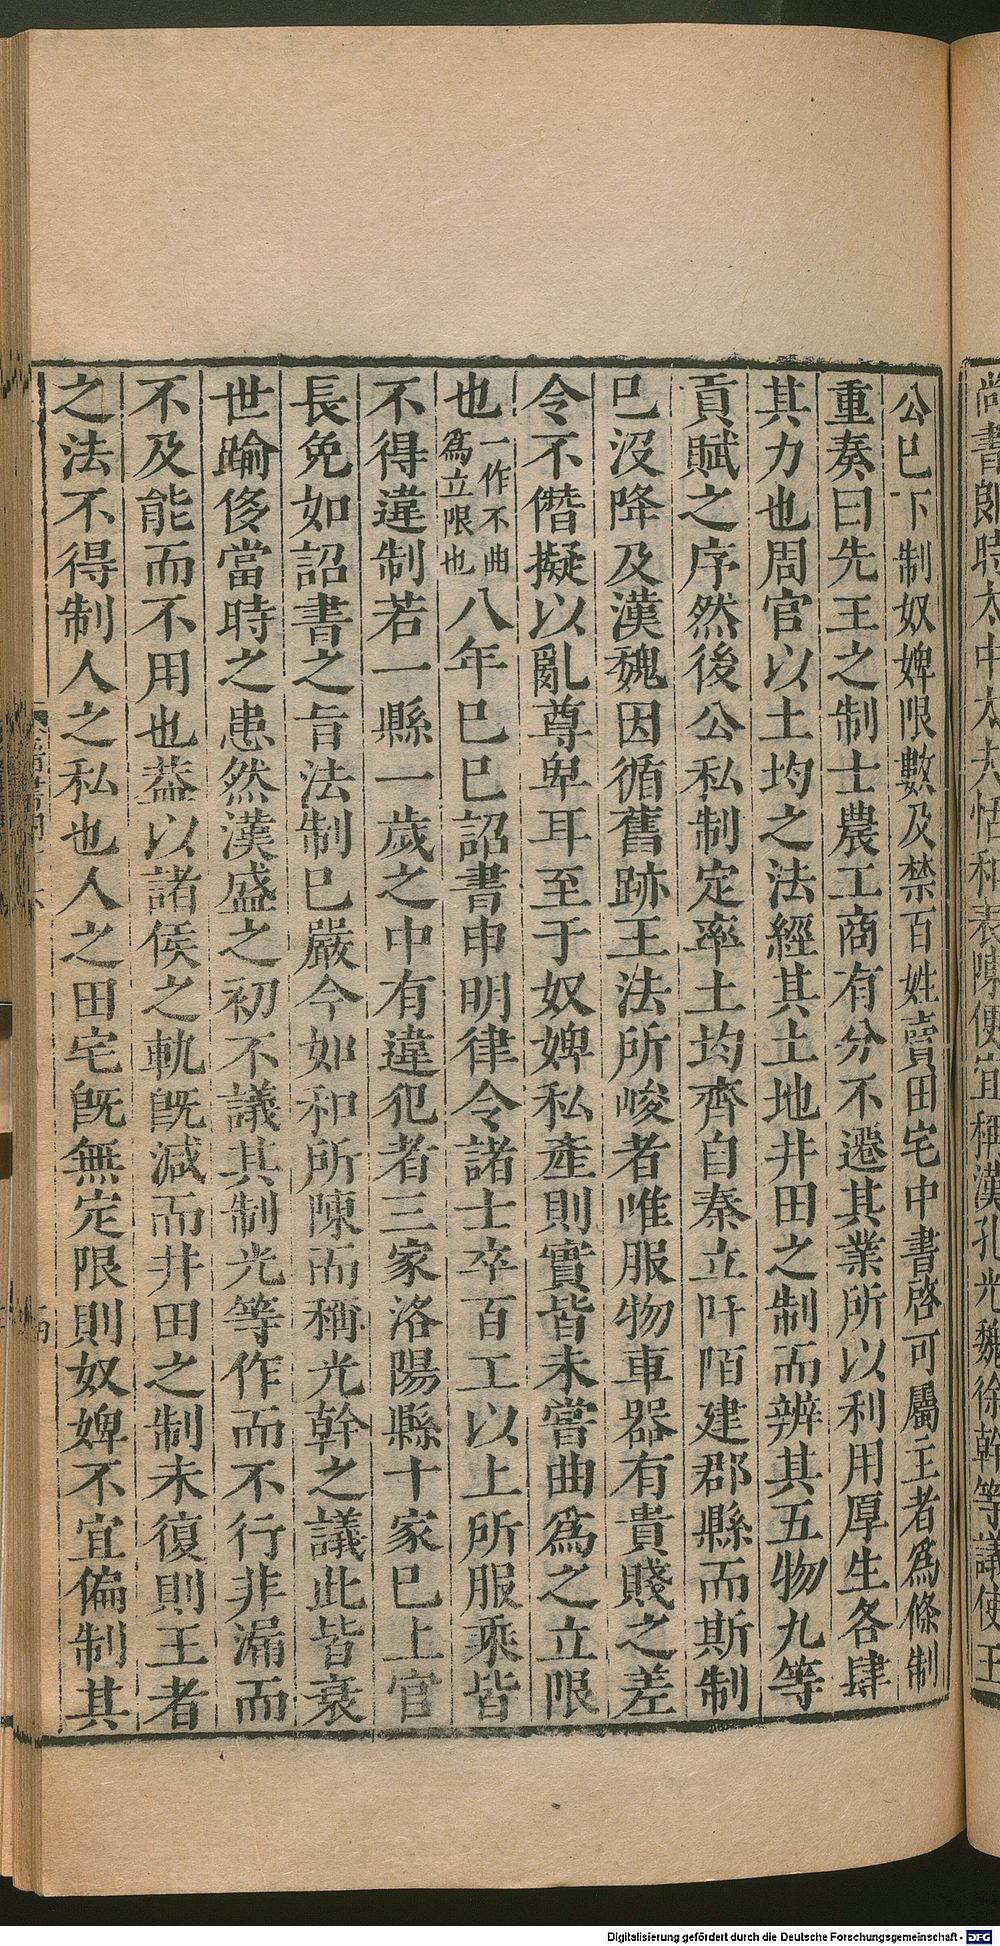 尚書郎時太中大夫恬和表陳便宜稱漢孔光魏徐幹等議使王
公已下制奴婢限數及禁百姓賣田宅中書啓可屬王者爲條制
重奏曰先王之制士農工商有分不遷其業所以利用厚生各肆
其力也周官以土均之法經其土地井田之制而辨其五物九等
貢賦之序然後公私制定率土均齊自秦立阡陌建郡縣而斯制
已沒降及漢魏因循舊跡王法所峻者唯服物車器有貴賤之差
令不僭擬以亂尊卑耳至于奴婢私產則實皆未嘗曲爲之立限
也一作不曲爲立限也八年巳巳詔書申明律令諸士卒百工以上所服乘皆
不得違制若一縣一歲之中有違犯者三家洛陽縣十家已上官
長免如詔書之旨法制已嚴今如和所陳而稱光幹之議此皆衰
世踰侈當時之患然漢盛之初不議其制光等作而不行非漏而
不及能而不用也蓋以諸侯之軌旣滅而井田之制未復則王者
之法不得制人之私也人之田宅旣無定限則奴婢不宜偏制其
Digitalisierung gefördert durch die Deutsche Forschungsgemeinschaft - DFG